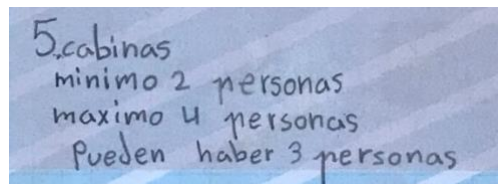 5.cabinas
minimo 2 personas
maximo 4 personas
Pueden haber 3 personas